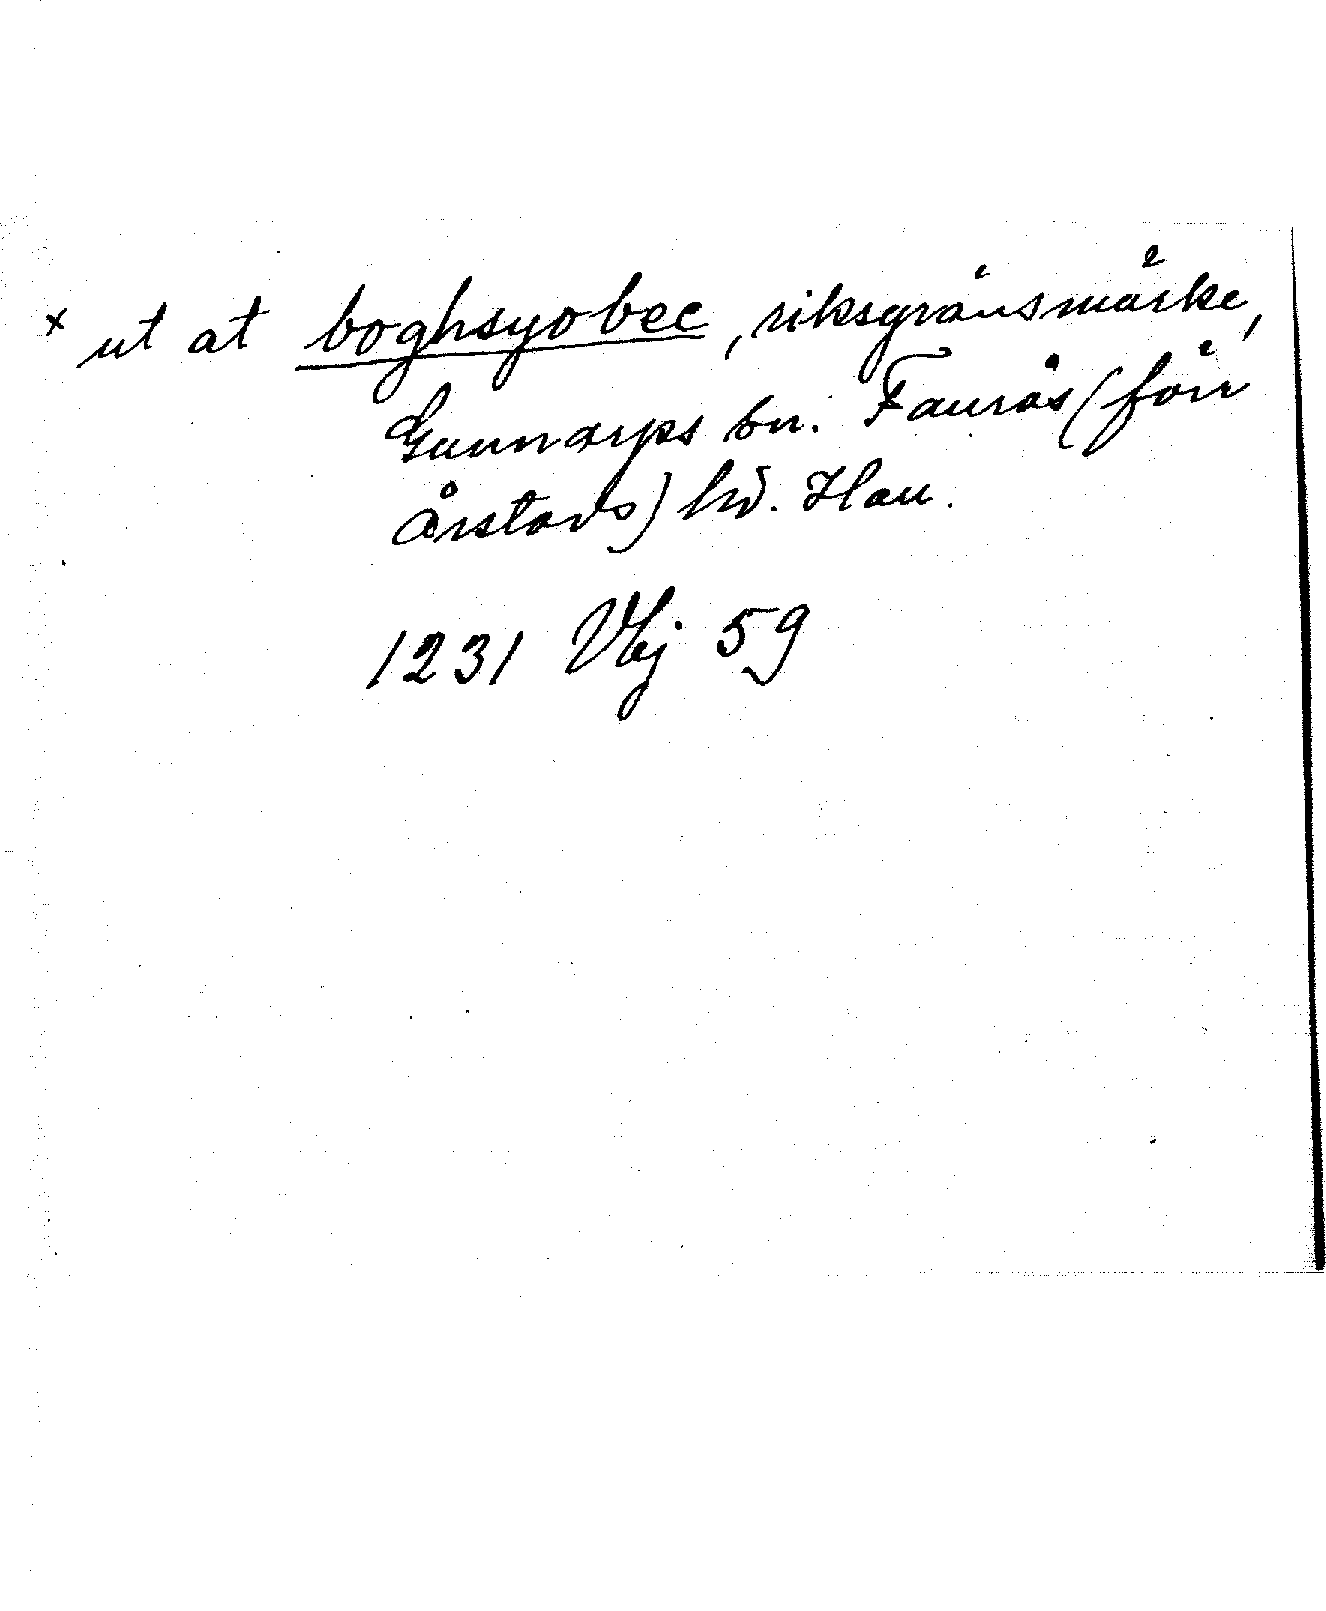 x ut at boghsyobec, riksgränsmärke,
Gunnarps sn. Faurås (förr
Årstads) hd. Hall.
1231 Vbj 59